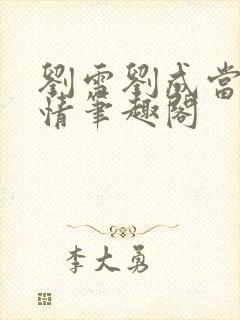 劉雪劉成當
情筆趣閣
李大勇